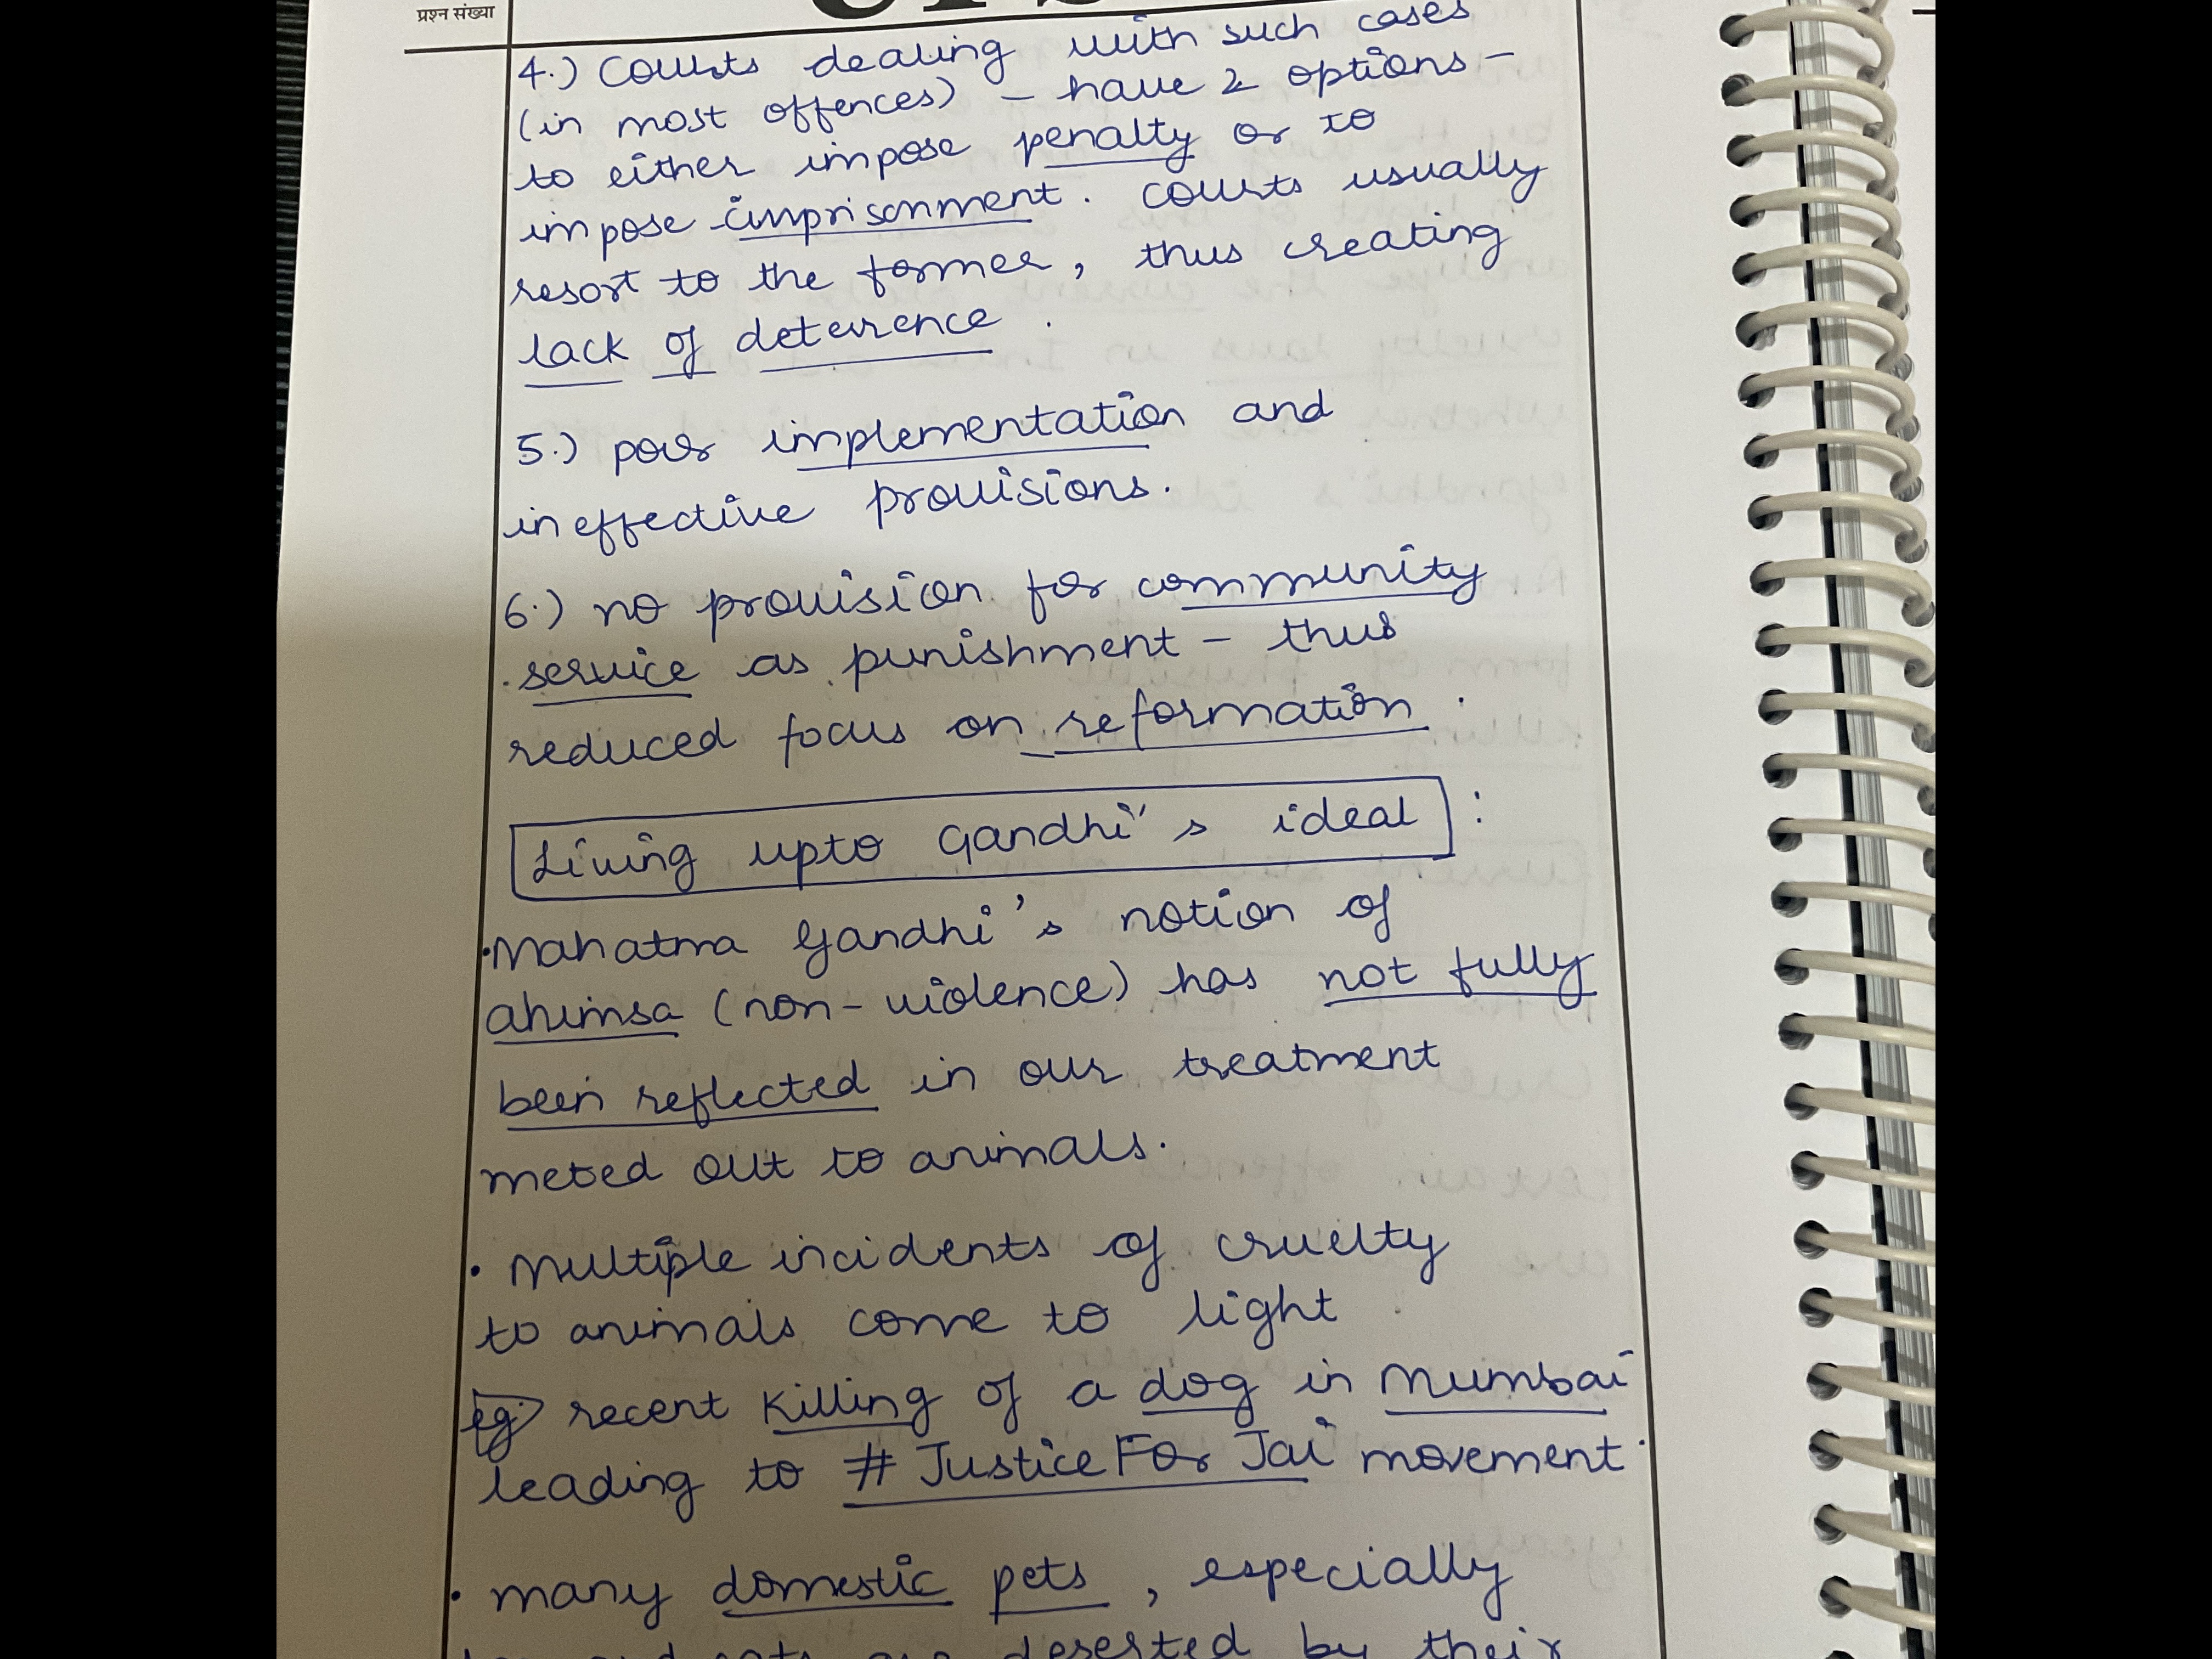 प्रश्न संख्या
4.) Courts dealing with such cases
(in most offences) - have 2 options -
to either impose penalty or to
impose imprisonment. Courts usually
resort to the former, thus creating
lack of deterrence.
5.) poor implementation and
ineffective provisions.
6.) no provision for community
service as punishment - thus
reduced focus on reformation.
Living upto Gandhi's ideal :
• Mahatma Gandhi's notion of
ahimsa (non-violence) has not fully
been reflected in our treatment
meted out to animals.
• Multiple incidents of cruelty
to animals come to light
eg. recent killing of a dog in Mumbai
leading to # JusticeFor Jai movement.
• many domestic pets, especially
deserted by their